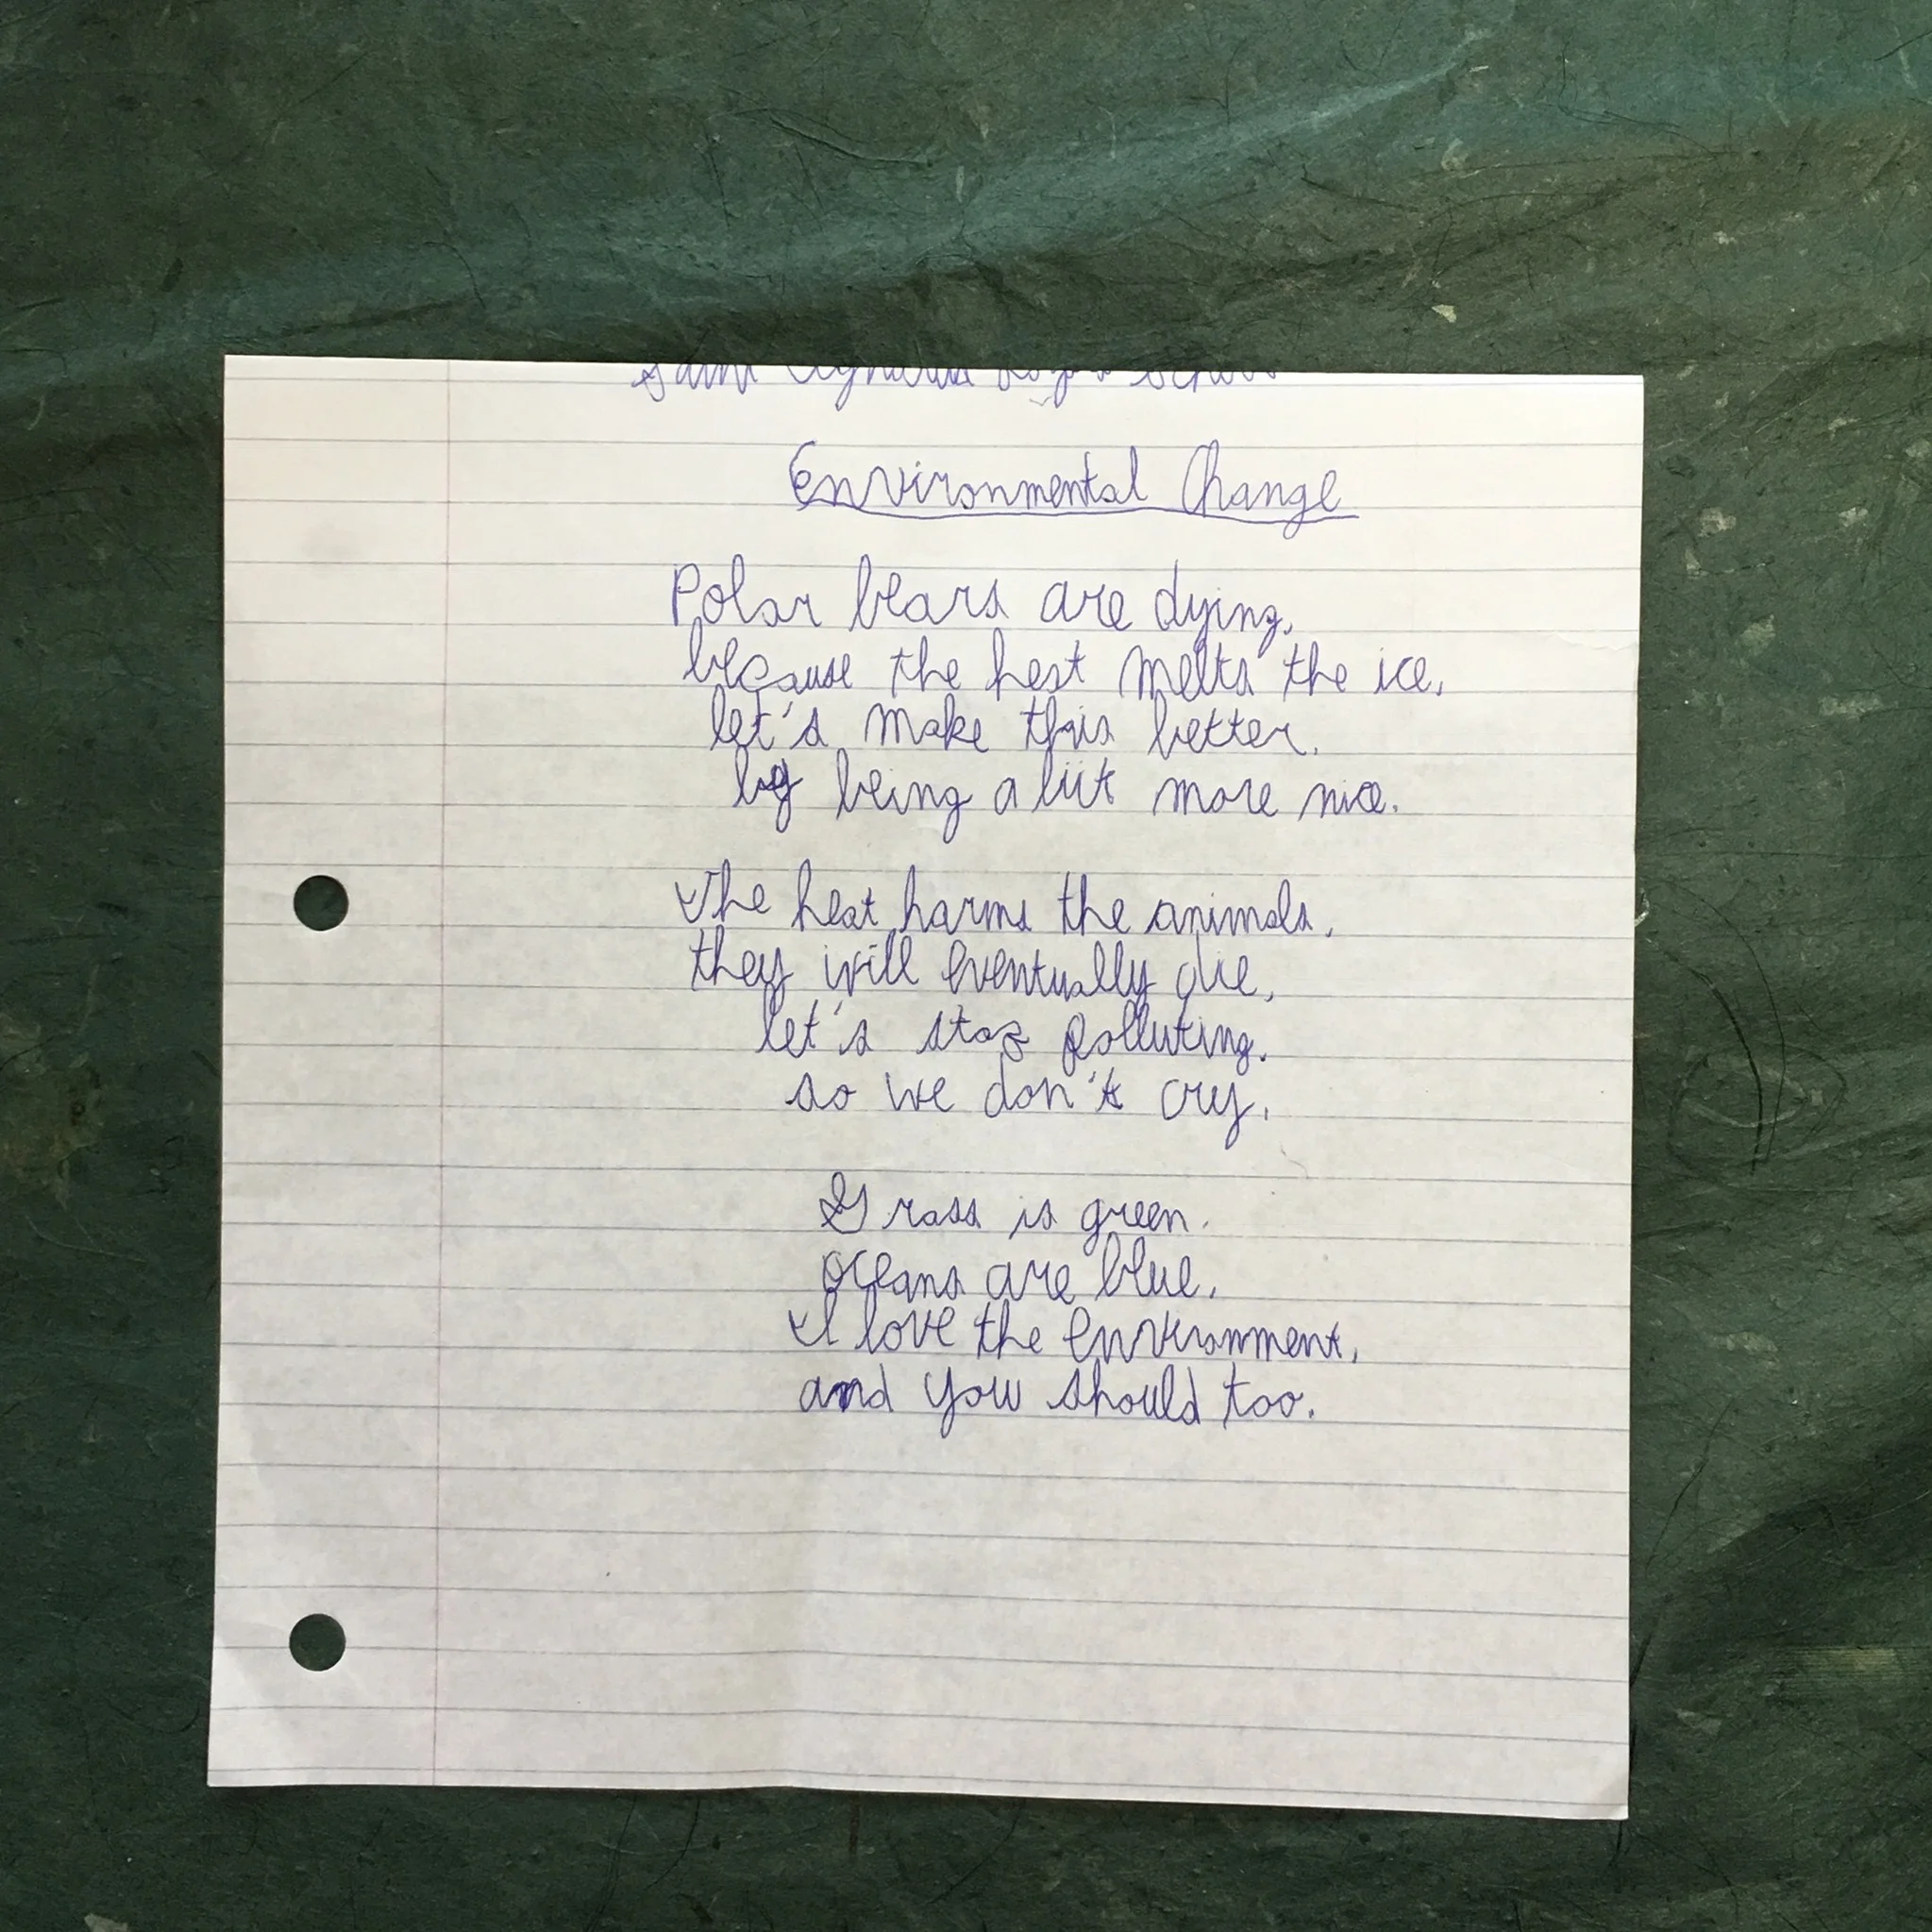 Saint School
Environmental Change
Polar bears are dying,
because the heat melts the ice,
let's make this better,
by being a bit more nice.
The heat harms the animals,
they will eventually die,
let's stop polluting,
so we don't cry.
Grass is green,
oceans are blue,
I love the environment,
and you should too.